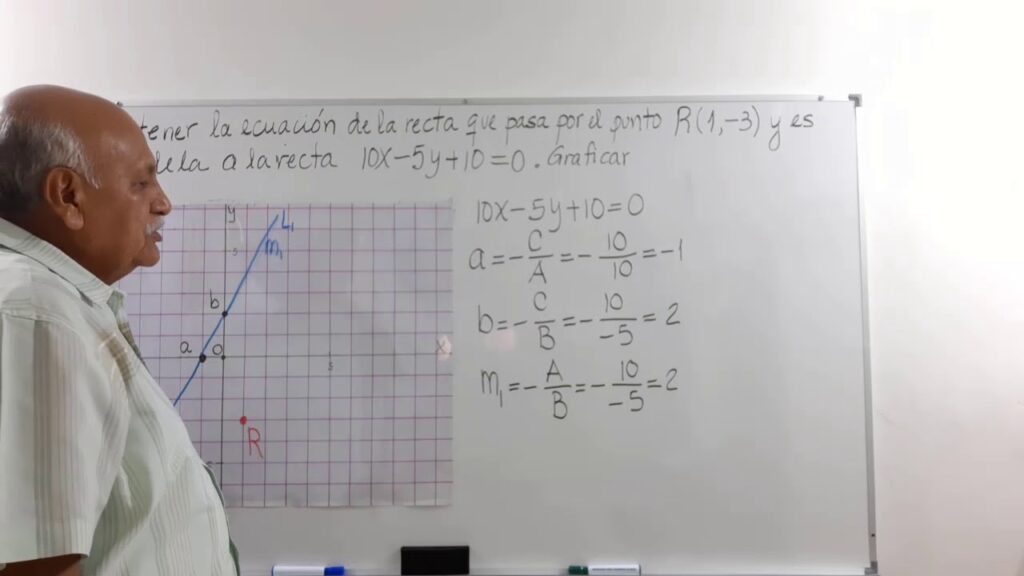 tener la ecuación de la recta que pasa por el punto R(1,-3) y es
lela a la recta 10x-5y+10=0. Graficar
y
L₁
5
m₁
b
a
0
x
5
R
10x-5y+10=0
a=-C/A=-10/10=-1
b=-C/B=-10/-5=2
m₁=-A/B=-10/-5=2